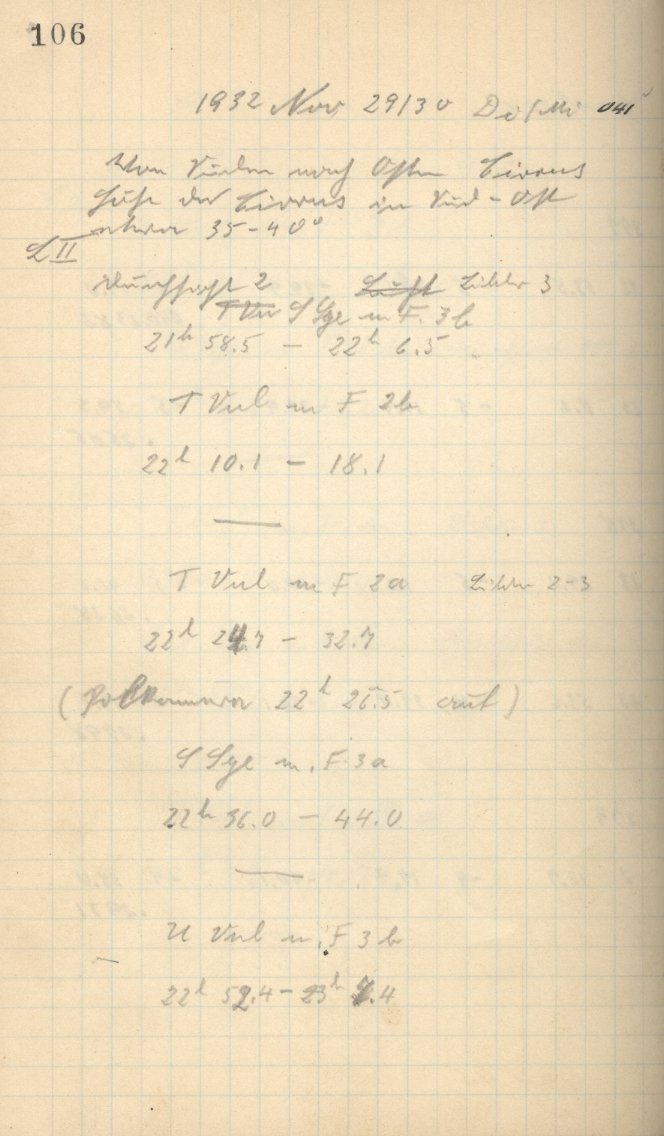 106
1932 Nov 29/30 Di/Mi 041
Von Süden nach Osten Cirrus
Höhe der Cirrus in Süd-Ost
etwa 35-40°
L II
Durchsicht 2 Luft Bilder 3
T Vu S Sge m F. 3b
21h 58.5 - 22h 6.5
T Vul m F 2b
22h 10.1 - 18.1
T Vul m F 2a Bilder 2-3
22h 24.7 - 32.7
(Polkamera 22h 26.5 auf)
S Sge m. F. 3a
22h 36.0 - 44.0
U Vul m. F 3b
22h 52.4 - 23h 7.4